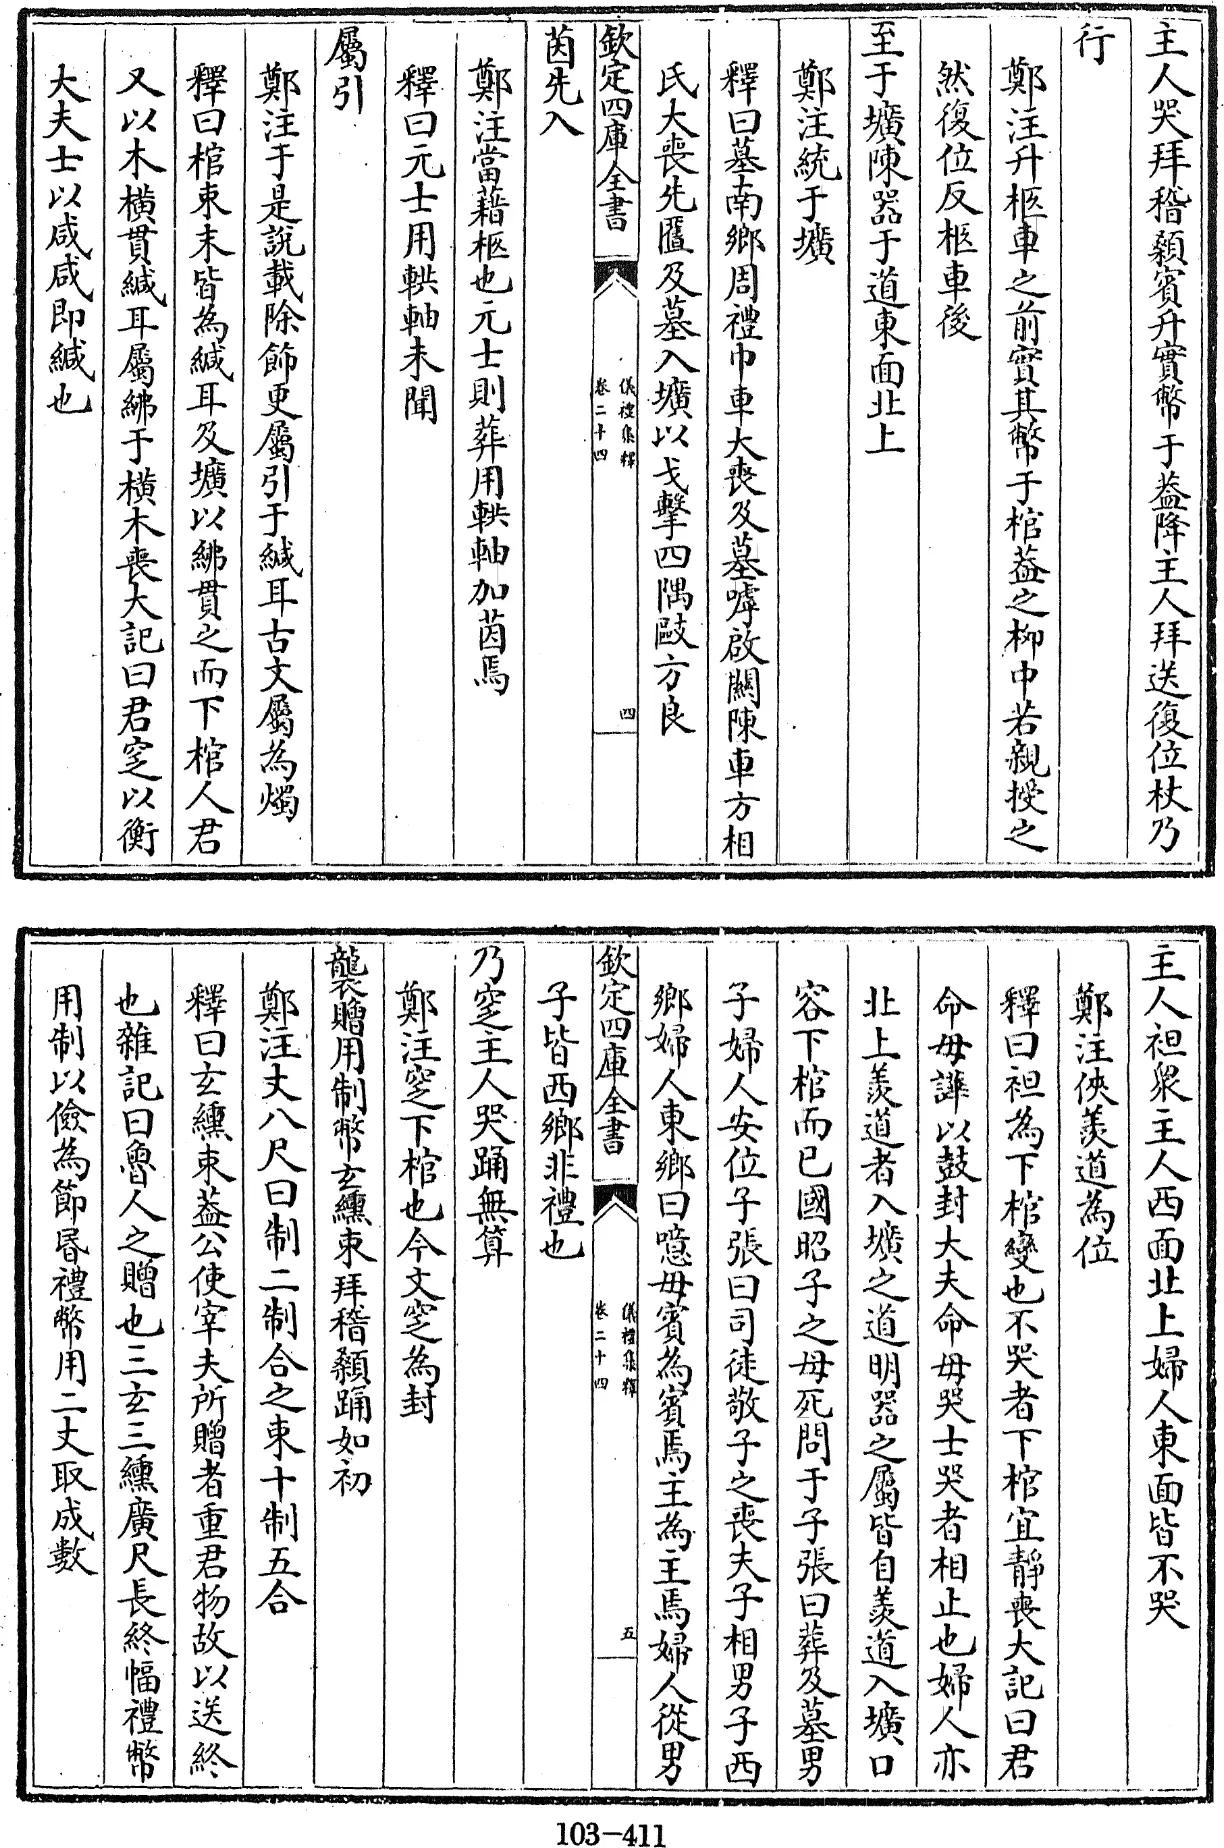 主人哭拜稽顙賓升實幣于葢降主人拜送復位杖乃
行
鄭注升柩車之前實其幣于棺葢之柳中若親授之
然復位反柩車後
至于壙陳器于道東面北上
鄭注統于壙
釋曰墓南鄉周禮巾車大喪及墓嘑啟關陳車方相
氏大喪先匶及墓入壙以戈擊四隅敺方良
欽定四庫全書
儀禮集釋
卷二十四
四
茵先入
鄭注當藉柩也元士則葬用輁軸加茵焉
釋曰元士用輁軸未聞
屬引
鄭注于是說載除飾更屬引于緘耳古文屬為燭
釋曰棺束末皆為緘耳及壙以紼貫之而下棺人君
又以木橫貫緘耳屬紼于橫木喪大記曰君窆以衡
大夫士以咸咸即緘也
主人袒衆主人西面北上婦人東面皆不哭
鄭注俠羨道為位
釋曰袒為下棺變也不哭者下棺宜靜喪大記曰君
命毋譁以鼓封大夫命毋哭士哭者相止也婦人亦
北上羨道者入壙之道明器之屬皆自羨道入壙口
容下棺而已國昭子之母死問于子張曰葬及墓男
子婦人安位子張曰司徒敬子之喪夫子相男子西
鄉婦人東鄉曰噫毋賓為賓焉主為主焉婦人從男
欽定四庫全書
儀禮集釋
卷二十四
五
子皆西鄉非禮也
乃窆主人哭踊無算
鄭注窆下棺也今文窆為封
襲贈用制幣玄纁束拜稽顙踊如初
鄭注丈八尺曰制二制合之束十制五合
釋曰玄纁束葢公使宰夫所贈者重君物故以送終
也雜記曰魯人之贈也三玄三纁廣尺長終幅禮幣
用制以儉為節昬禮幣用二丈取成數
103-411